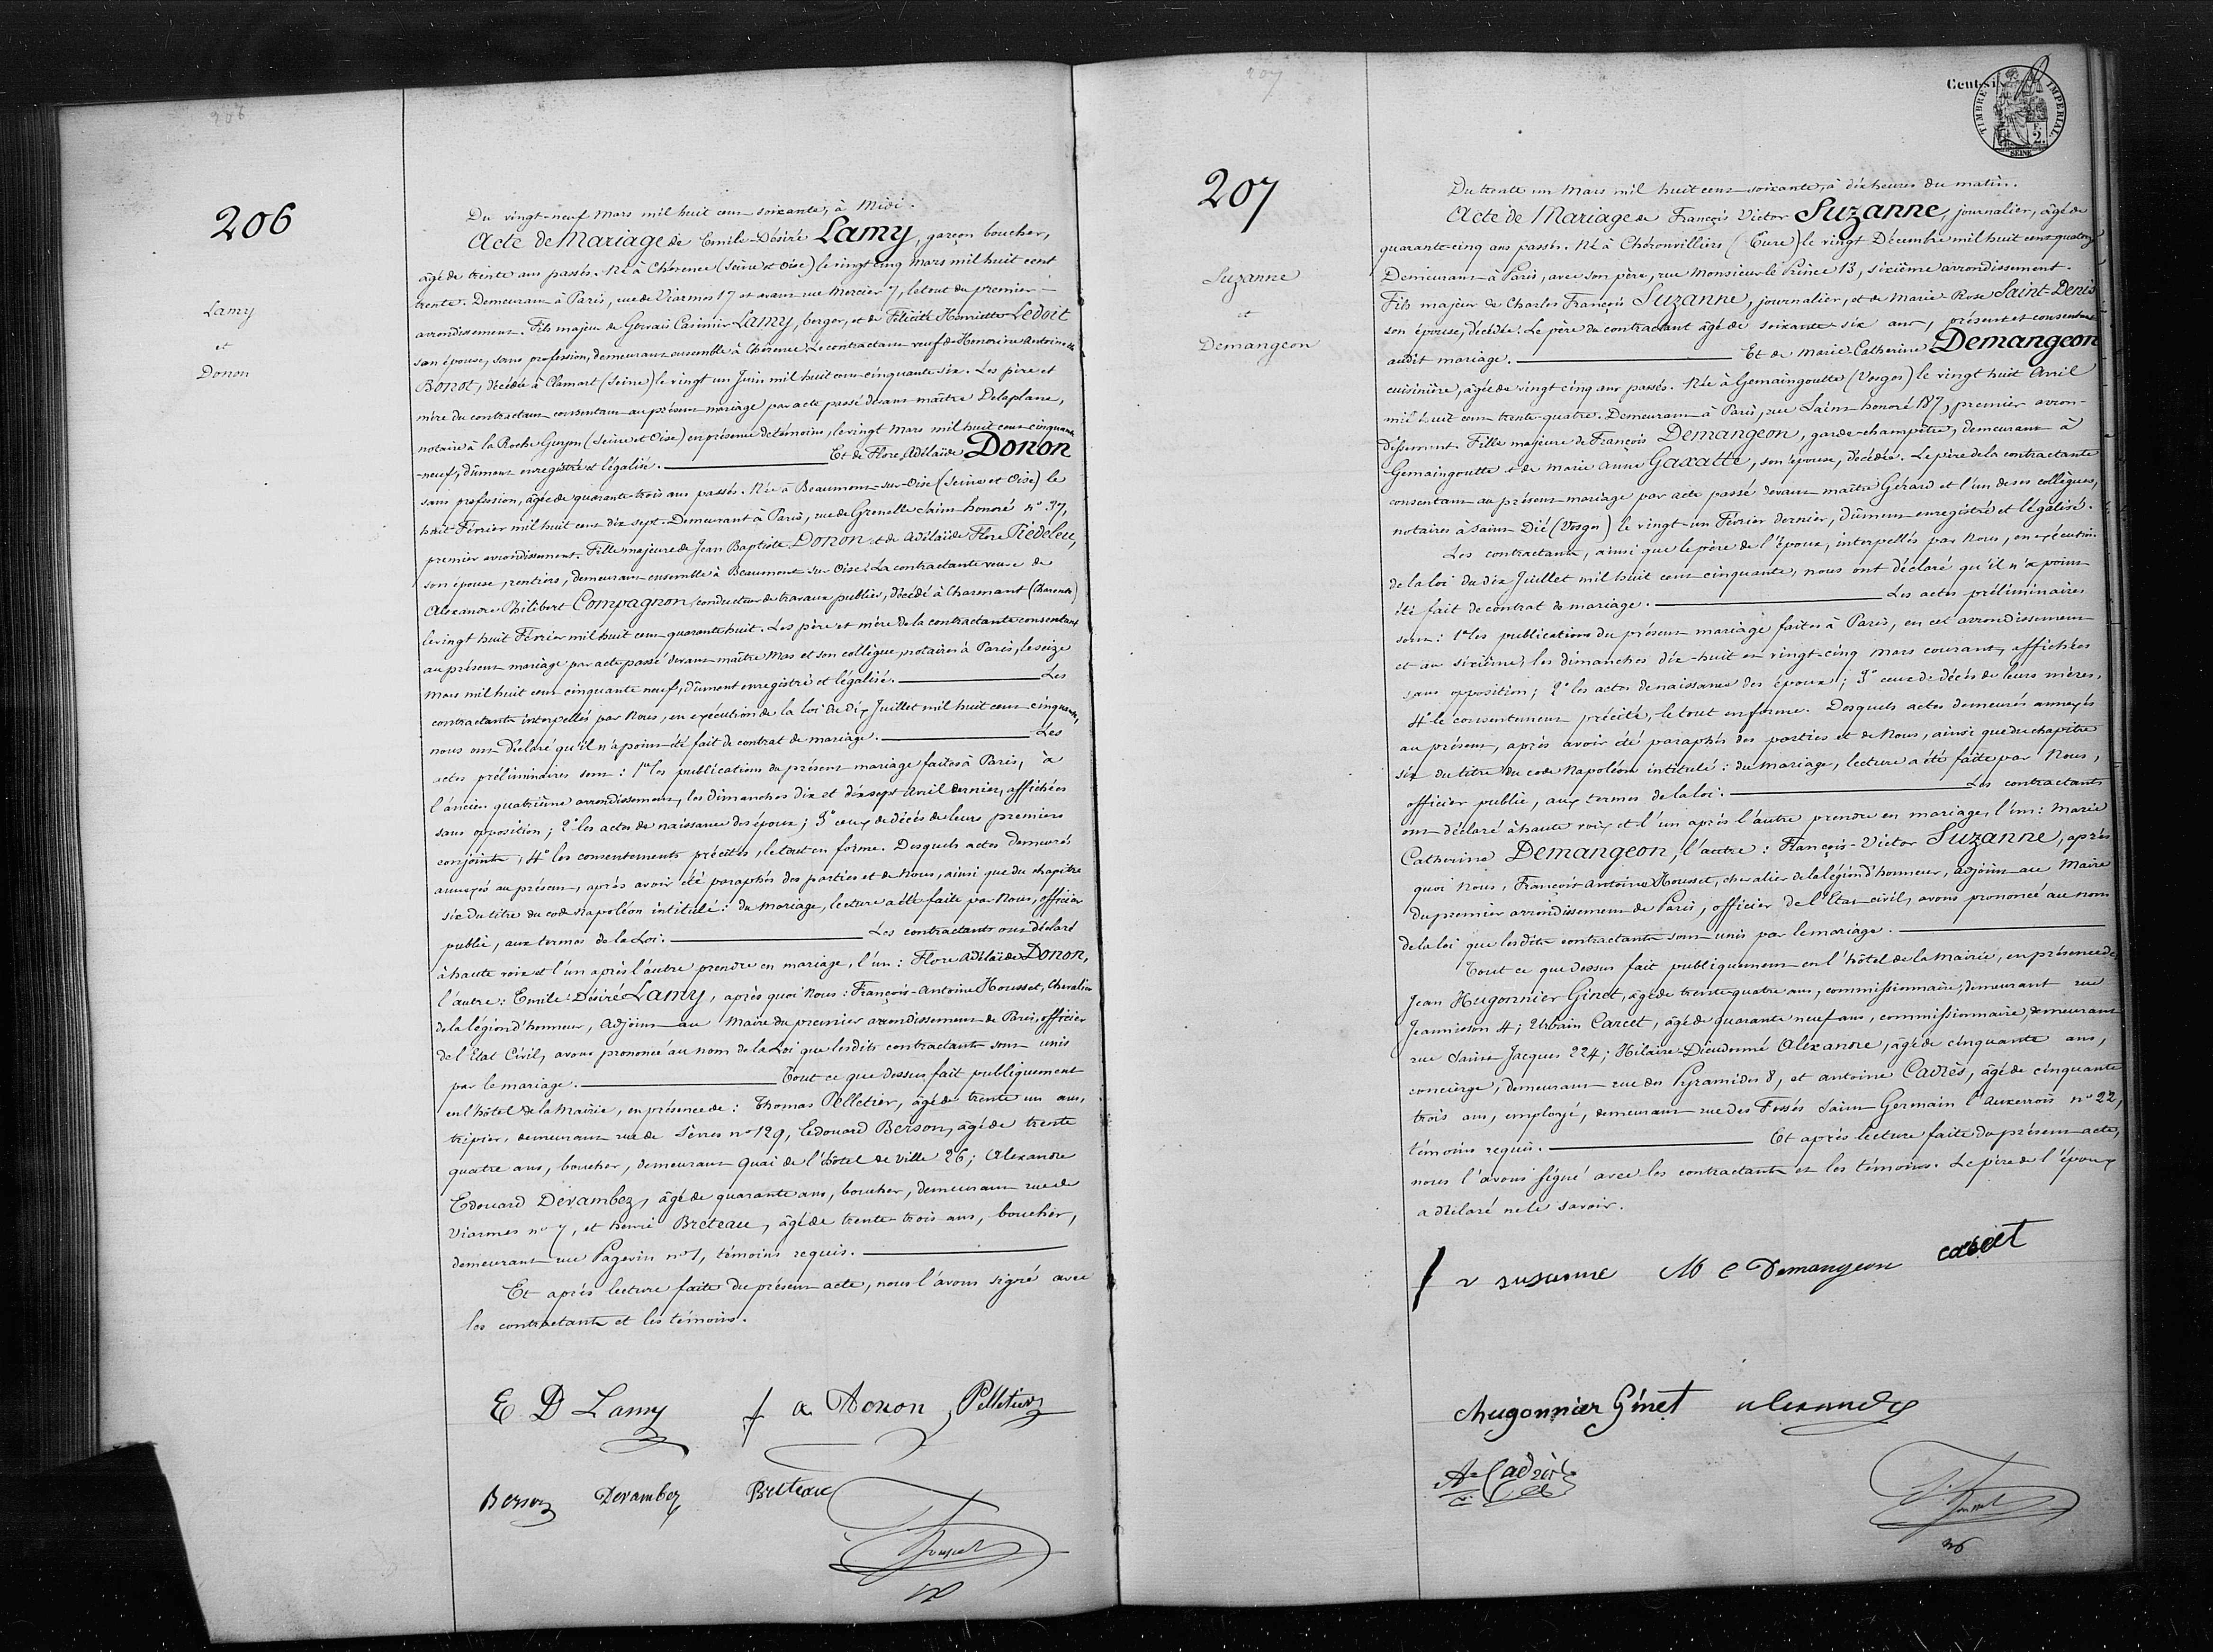 206
206
Lamy
et
Donon
Du vingt-neuf Mars mil huit cent soixante, à Midi.
Acte de Mariage de Emile-Désiré Lamy, garçon boucher,
âgé de trente ans passés. Né à Chérence (Seine et Oise) le vingt cinq Mars mil huit cent
trente. Demeurant à Paris, rue de Viarmes 17 et avant rue Mercier 7, le tout du premier
arrondissement. Fils majeur de Gervais Casimir Lamy, berger, et de Félicité Henriette Ledoit
son épouse, sans profession, demeurant ensemble à Chérence. Le contractant veuf de Honorine Antoinette
Bonot, décédée à Clamart (Seine) le vingt un Juin mil huit cent cinquante six. Les père et
mère du contractant consentant au présent mariage par acte passé devant maître Delaplane,
notaire à la Roche Guyon (Seine et Oise) en présence de témoins, le vingt Mars mil huit cent cinquante
-neuf, dûment enregistré et légalisé. Et de Flore Adélaïde Donon
sans profession, âgée de quarante-trois ans passés. Née à Beaumont-sur-Oise (Seine et Oise) le
huit Février mil huit cent dix sept. Demeurant à Paris, rue de Grenelle Saint-honoré n° 37,
premier arrondissement. Fille majeure de Jean Baptiste Donon et de Adélaïde Flore Piédeleu,
son épouse, rentiers, demeurant ensemble à Beaumont sur Oise. La contractante veuve de
Alexandre Philibert Compagnon, conducteur de travaux publics, décédé à Charmant (Charente)
le vingt huit Février mil huit cent quarante huit. Les père et mère de la contractante consentant
au présent mariage par acte passé devant maître Mas et son collègue, notaires à Paris, le seize
Mars mil huit cent cinquante neuf, dûment enregistré et légalisé. Les
contractants interpellés par Nous, en exécution de la loi du Dix Juillet mil huit cent cinquante,
nous ont déclaré qu'il n'a point été fait de contrat de mariage. Les
actes préliminaires sont : 1° les publications du présent mariage faites à Paris, à
l'ancien quatrième arrondissement, les dimanches dix et dix sept Avril dernier, affichées
sans opposition ; 2° les actes de naissance des époux ; 3° ceux de décès de leurs premiers
conjoints, 4° les consentements précités, le tout en forme. Desquels actes demeurés
annexés au présent, après avoir été paraphés des parties et de Nous, ainsi que du chapitre
six du titre du code Napoléon intitulé : du Mariage, lecture a été faite par Nous, officier
public, aux termes de la Loi. Les contractants ont déclaré
à haute voix et l'un après l'autre prendre en mariage, l'un : Flore Adélaïde Donon,
l'autre : Emile Désiré Lamy, après quoi Nous : François-Antoine Housset, Chevalier
de la légion d'honneur, Adjoint au Maire du premier arrondissement de Paris, officier
de l'Etat Civil, avons prononcé au nom de la Loi que lesdits contractants sont unis
par le mariage. Tout ce que dessus fait publiquement
en l'hôtel de la Mairie, en présence de : Thomas Pelletier, âgé de trente un ans,
tripier, demeurant rue de Sèvres n° 129, Edouard Berson, âgé de trente
quatre ans, boucher, demeurant quai de l'hôtel de Ville 26 ; Alexandre
Edouard Devambez, âgé de quarante ans, boucher, demeurant rue de
Viarmes n° 7, et henri Breteau, âgé de trente trois ans, boucher,
demeurant rue Pagevin n° 1, témoins requis.
Et après lecture faite du présent acte, nous l'avons signé avec
les contractants et les témoins.
E D Lamy f a Donon Pelletier
Berson Devambez Breteau
Housset
207
207
Cent-si
TIMBRE IMPERIAL
2
SEINE
Suzanne
et
Demangeon
Du trente un Mars mil huit cent soixante, à dix heures du matin.
Acte de Mariage de François Victor Suzanne, journalier, âgé de
quarante-cinq ans passés. Né à Chéronvilliers (Eure) le vingt Décembre mil huit cent quatorze
Demeurant à Paris, avec son père, rue Monsieur le Prince 13, sixième arrondissement.
Fils majeur de Charles François Suzanne, journalier, et de Marie Rose Saint-Denis
son épouse, décédée. Le père du contractant âgé de soixante-six ans, présent et consentant
audit mariage. Et de Marie Catherine Demangeon
cuisinière, âgée de vingt cinq ans passés. Née à Gemaingoutte (Vosges) le vingt huit Avril
mil huit cent trente-quatre. Demeurant à Paris, rue Saint-honoré 187, premier arron-
dissement. Fille majeure de François Demangeon, garde-champêtre, demeurant à
Gemaingoutte et de Marie Anne Gaxatte, son épouse, décédée. Le père de la contractante
consentant au présent mariage par acte passé devant maître Gérard et l'un de ses collègues,
notaires à Saint Dié (Vosges) le vingt-un Février dernier, dûment enregistré et légalisé.
Les contractants, ainsi que le père de l'époux, interpellés par Nous, en exécution
de la loi du dix Juillet mil huit cent cinquante, nous ont déclaré qu'il n'a point
été fait de contrat de mariage. Les actes préliminaires
sont : 1° les publications du présent mariage faites à Paris, en cet arrondissement
et au sixième, les dimanches dix-huit et vingt-cinq Mars courant, affichées
sans opposition ; 2° les actes de naissance des époux ; 3° ceux de décès de leurs mères,
4° le consentement précité, le tout en forme. Desquels actes demeurés annexés
au présent, après avoir été paraphés des parties et de Nous, ainsi que du chapitre
six du titre du code Napoléon intitulé : du Mariage, lecture a été faite par Nous,
officier public, aux termes de la loi. Les contractants
ont déclaré à haute voix et l'un après l'autre prendre en mariage, l'un : Marie
Catherine Demangeon, l'autre : François-Victor Suzanne, après
quoi Nous, François Antoine Housset, chevalier de la légion d'honneur, Adjoint au Maire
du premier arrondissement de Paris, officier de l'Etat civil, avons prononcé au nom
de la loi que lesdits contractants sont unis par le mariage.
Tout ce que dessus fait publiquement en l'hôtel de la Mairie, en présence de
Jean Hugonnier Ginet, âgé de trente quatre ans, commissionnaire, demeurant rue
Jeannisson 4 ; Urbain Carcet, âgé de quarante neuf ans, commissionnaire, demeurant
rue Saint Jacques 224 ; Hilaire-Dieudonné Alexandre, âgé de cinquante ans,
concierge, demeurant rue des Pyramides 8, et Antoine Cadrès, âgé de cinquante
trois ans, employé, demeurant rue des Fossés Saint-Germain l'Auxerrois n° 22,
témoins requis. Et après lecture faite du présent acte,
nous l'avons signé avec les contractants et les témoins. Le père de l'époux
a déclaré ne le savoir.
f v susanne M C Demangeon
hugonnier Ginet alexandre
A. Cadrès
Housset